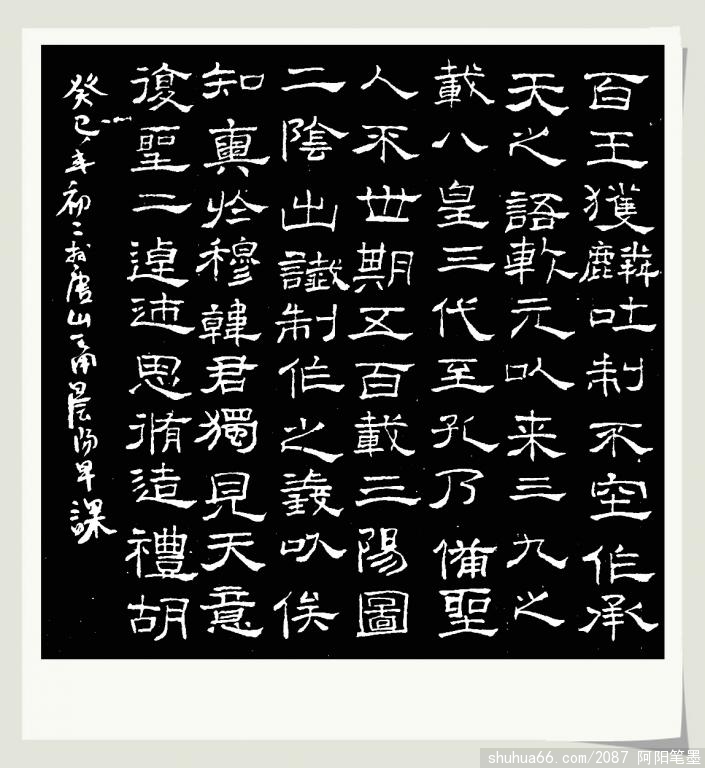 百王獲麟吐制不空作承
天之語乾元以来三九之
載八皇三代至孔乃備聖
人不世期五百載三陽圖
二陰出讖制作之義以俟
知奧於穆韓君獨見天意
復聖二逴越思脩造禮胡
癸巳年初二於唐山晨阳早課
shuhua66.com/2087 阿阳笔墨